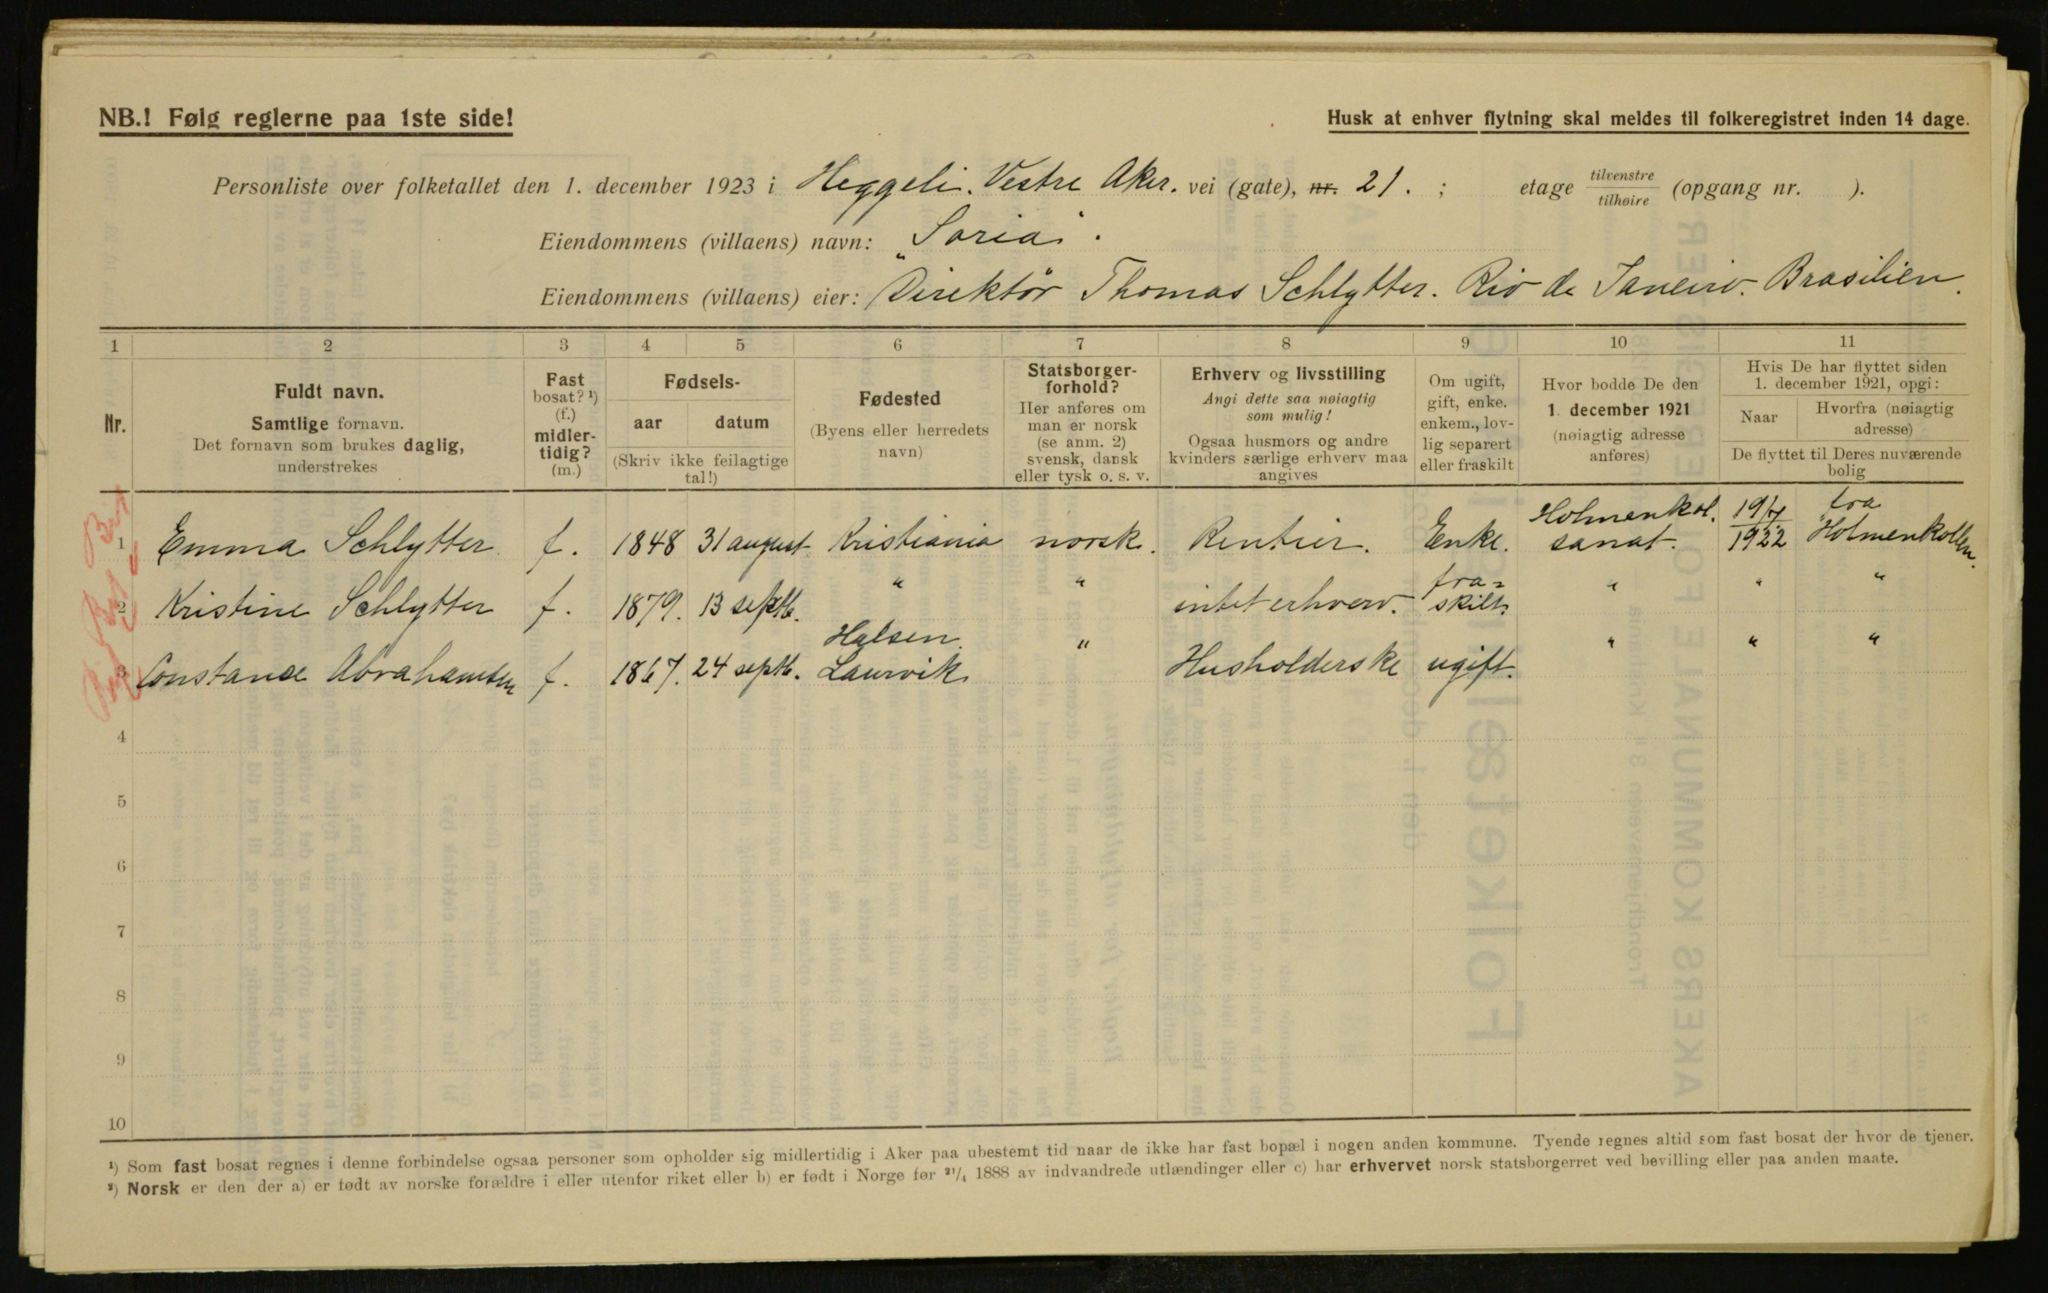 NB.! Følg reglerne paa 1ste side!
Husk at enhver flytning skal meldes til folkeregistret inden 14 dage.
Personliste over folketallet den 1. december 1923 i Heggeli. Vestre Aker. vei (gate), nr. 21. ; etage tilvenstre/tilhøire (opgang nr. ).
Eiendommens (villaens) navn: "Soria".
Eiendommens (villaens) eier: Direktør Thomas Schlytter. Rio de Janeiro. Brasilien.
1 2 3 4 5 6 7 8 9 10 11
Nr.
Fuldt navn.
Samtlige fornavn.
Det fornavn som brukes daglig,
understrekes
Fast
bosat? ¹)
(f.)
midler-
tidig?
(m.)
Fødsels-
aar datum
(Skriv ikke feilagtige
tal!)
Fødested
(Byens eller herredets
navn)
Statsborger-
forhold?
Her anføres om
man er norsk
(se anm. 2)
svensk, dansk
eller tysk o. s. v.
Erhverv og livsstilling
Angi dette saa nøiagtig
som mulig!
Ogsaa husmors og andre
kvinders særlige erhverv maa
angives
Om ugift,
gift, enke.
enkem., lov-
lig separert
eller fraskilt
Hvor bodde De den
1. december 1921
(nøiagtig adresse
anføres)
Hvis De har flyttet siden
1. december 1921, opgi:
Naar
Hvorfra (nøiagtig
adresse)
De flyttet til Deres nuværende
bolig
1 Emma Schlytter. f. 1848 31 august. Kristiania norsk. Rentier. Enke. Holmenkol. sanat. 19/4 1922 fra Holmenkollen.
2 Kristine Schlytter f. 1879. 13 septb. " " intet erhverv. fra=skilt " " "
3 Constance Abrahamsen f. 1867. 24 septb. Halsen. Laurvik " Husholderske ugift. " " "
4
5
6
7
8
9
10
¹) Som fast bosat regnes i denne forbindelse ogsaa personer som opholder sig midlertidig i Aker paa ubestemt tid naar de ikke har fast bopæl i nogen anden kommune. Tyende regnes altid som fast bosat der hvor de tjener.
²) Norsk er den der a) er født av norske forældre i eller utenfor riket eller b) er født i Norge før ²¹/₄ 1888 av indvandrede utlændinger eller c) har erhvervet norsk statsborgerret ved bevilling eller paa anden maate.